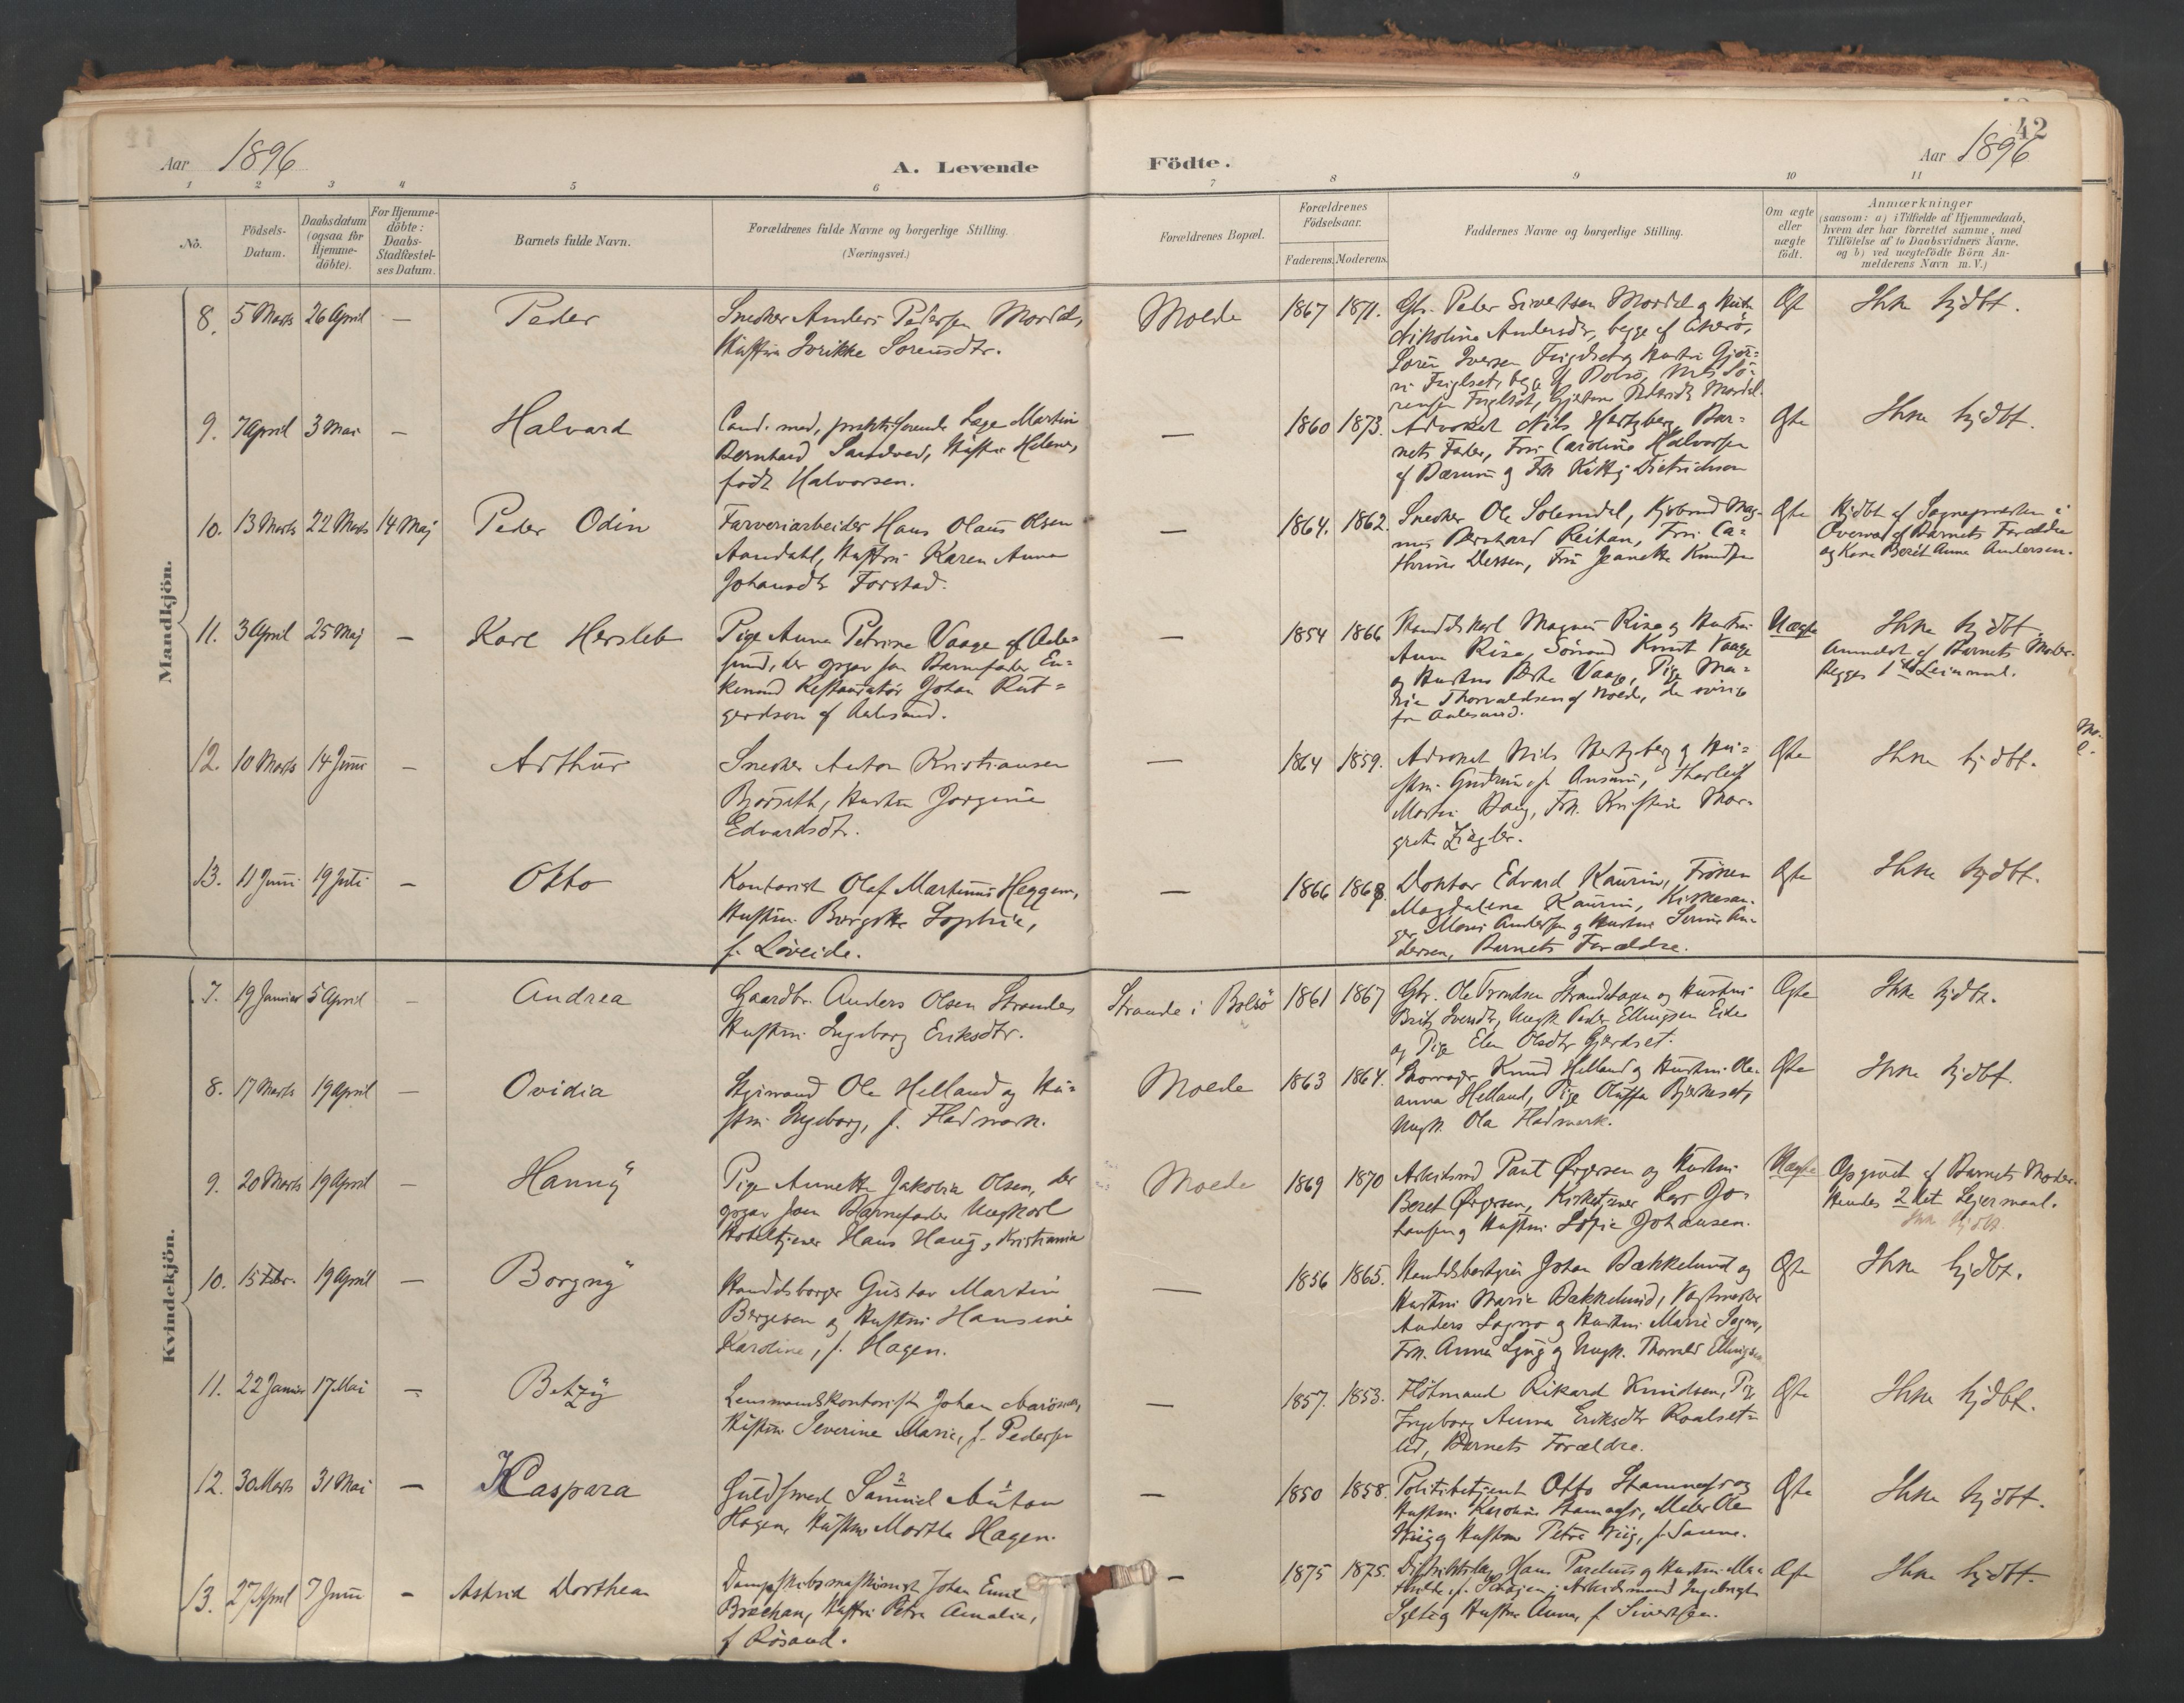 42
Aar 1896
A. Levende
Födte.
Aar 1896
1 2 3 4 5 6 7 8 9 10 11
No.
Födsels-
Datum.
Daabsdatum
(ogsaa för
Hjemme-
döbte).
For Hjemme-
döbte:
Daabs-
Stadfæstel-
ses Datum.
Barnets fulde Navn.
Forældrenes fulde Navne og borgerlige Stilling.
(Næringsvei.)
Forældrenes Bopæl.
Forældrenes
Födselsaar.
Faderens. Moderens.
Faddernes Navne og borgerlige Stilling.
Om ægte
eller
uægte
födt.
Anmærkninger
(saasom: a) i Tilfælde af Hjemmedaab,
hvem der har forrettet samme, med
Tilföielse af to Daabsvidners Navne,
og b) ved uægtefödte Börn An-
melderens Navn m. V.)
Mandkjön.
8. 5 Marts 26 April — Peder
Snedker Anders Pedersen Mordal,
Hustru Marikke Sørensdtr.
Molde 1867 1871.
Gbr. Peder Sivertsen Mordal og Hustru
Nikoline Andersdtr, begge af Akerö,
Sören Iversen Fuglset og Hustru Gjör-
Ægte Ikke hjdbt.
9. 7 April 3 Mai — Halvard
Cand. med, praktiserende Læge Martin
Bernhard Sandved, Hustru Helene,
født Halvorsen.
— 1860 1873.
Advokat Nils Hertzberg, Bar-
nets Fader, Fru Caroline Halvorsen
af Bærum og Frk Kitty Dietrichson
Ægte Ikke hjdbt.
10. 13 Marts 22 Marts 14 Maj Peder Odin
Farveriarbeider Hans Olaus Olsen
Aandahl, Hustru Karen Anna
Johansdtr Forstad.
— 1864. 1862.
Snedker Ole Solemdal, Kjøbmd Mag-
nus Bernhard Reitan, Fru Ca-
thrine Dessen, Fru Jeanette Knudsen
Ægte Hjdbt af Sognepresten i
Overvær af Barnets Forældre
og Kone Berit Anna Andersen.
11. 3 April 25 Maj — Karl Hersleb
Pige Anna Petrine Vaage af Aale-
sund, der opgav som Barnefader En-
kemand Restauratör Johan Rut-
gerdson af Aalesund.
— 1854 1866
Handelskarl Magnus Rise og Hustru
Anna Rise, Sömand Knut Vaage
og Hustru Berte Vaage, Pige Ma-
rie Thorvaldsen af Molde, de övrige
fra Aalesund.
Uægte Ikke hjdbt.
Anmeldt af Barnets Moder.
Begges 1ste Leiermaal.
12. 10 Marts 14 Juni — Arthur
Snedker Anton Kristiansen
Bjørseth, Hustru Jørgine
Edvardsdtr.
— 1864 1859.
Advokat Nils Hertzberg og Hu-
stru Gudrun f. Ansam, Thorleif
Martin Haug, Frk. Kristine Mar-
grete Ziegler.
Ægte Ikke hjdbt.
13. 11 Juni 19 Juli — Otto
Kontorist Olaf Martinus Heggem,
Hustru Bergitte Sophie,
f. Löveide.
— 1866 1868.
Doktor Edvard Kaurin, Fröken
Magdalene Kaurin, Kirkesan-
ger Mons Andersen og Hustru Serine An-
dersen, Barnets Forældre.
Ægte Ikke hjdbt.
Kvindekjön.
7. 19 Januar 5 April — Andrea
Gaardbr. Anders Olsen Strande,
Hustru Ingeborg Eriksdtr.
Strande i Bolsö 1861 1867
Gbr. Ole Trondsen Strandehagen og Hustru
Brit Iversdtr, Ungk. Peder Ellingsen Eide
og Pige Elen Olsdtr Gjerdset.
Ægte Ikke hjdbt.
8. 17 Marts 19 April — Ovidia
Styrmand Ole Helland og Hu-
stru Ingeborg, f. Fladmark.
Molde 1863 1864.
Knud Helland og Hustru Ole-
anna Helland, Pige Oluffa Bjerkeset,
Ungk. Ola Fladmark.
Ægte Ikke hjdbt.
9. 20 Marts 19 April — Hanny
Pige Annette Jakobia Olsen, der
opgav som Barnefader Ungkarl
Hoteltjener Hans Haug, Kristiania
Molde 1869 1870
Arbeidsmd Paul Ørjersen og Hustru
Beret Ørjersen, Kirketjener Lars Jo-
hansen og Hustru Sofie Johansen.
Uægte Opgivet af Barnets Moder.
Hendes 2det Lejermaal.
Ikke hjdbt.
10. 15 Febr. 19 April — Borgny
Handelsborger Gustav Martin
Bergesen og Hustru Hansine
Karoline, f. Hagen.
— 1856 1865.
Handelsbestyrer Johan Bakkelund og
Hustru Marie Bakkelund, Vagtmester
Anders Sogno og Hustru Marie Sogno,
Frk. Anna Lyng og Ungk. Thorvald Ellingsen
Ægte Ikke hjdbt.
11. 22 Januar 17 Mai — Betzy
Lensmandskontorist Johan Aarönes,
Hustru Severine Marie, f. Pedersen
— 1857. 1853.
Flötmand Rikard Knudsen, Pige
Ingeborg Anna Eriksdtr Roalset-
lid, Barnets Forældre.
Ægte Ikke hjdbt.
12. 30 Marts 31 Mai — Kaspara
Guldsmed Samuel Anton
Hagen, Hustru Martha Hagen.
— 1850 1858.
Politibetjent Otto Stamnæs og
Hustru Karoline Stamnæs, Maler Ole
Wiig og Hustru Petra Wiig, f. Sanne.
Ægte Ikke hjdbt.
13. 27 April 7 Juni — Astrid Dorthea
Dampskibsmaskinist Johan Emil
Brechan, Hustru Petra Amalie,
f. Rösand.
— 1875 1875.
Distriktslæge Hans Paselius og Hustru Ma-
thilde f. ; Arbeidsmand Ingebrigt
Sylte og Hustru Anna, f. Sivertsen.
Ægte Ikke hjdbt.